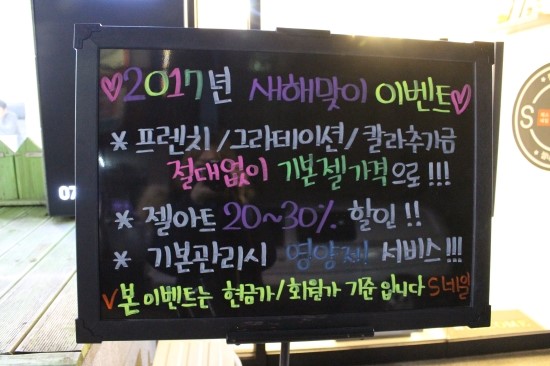 ♡2017년 새해맞이 이벤트♡
* 프렌치/그라데이션/칼라추가금
절대없이 기본젤가격으로!!!
* 젤아트 20~30% 할인!!
* 기본관리시 영양제 서비스!!!
V본 이벤트는 현금가/회원가 기준 입니다 S네일
07
S